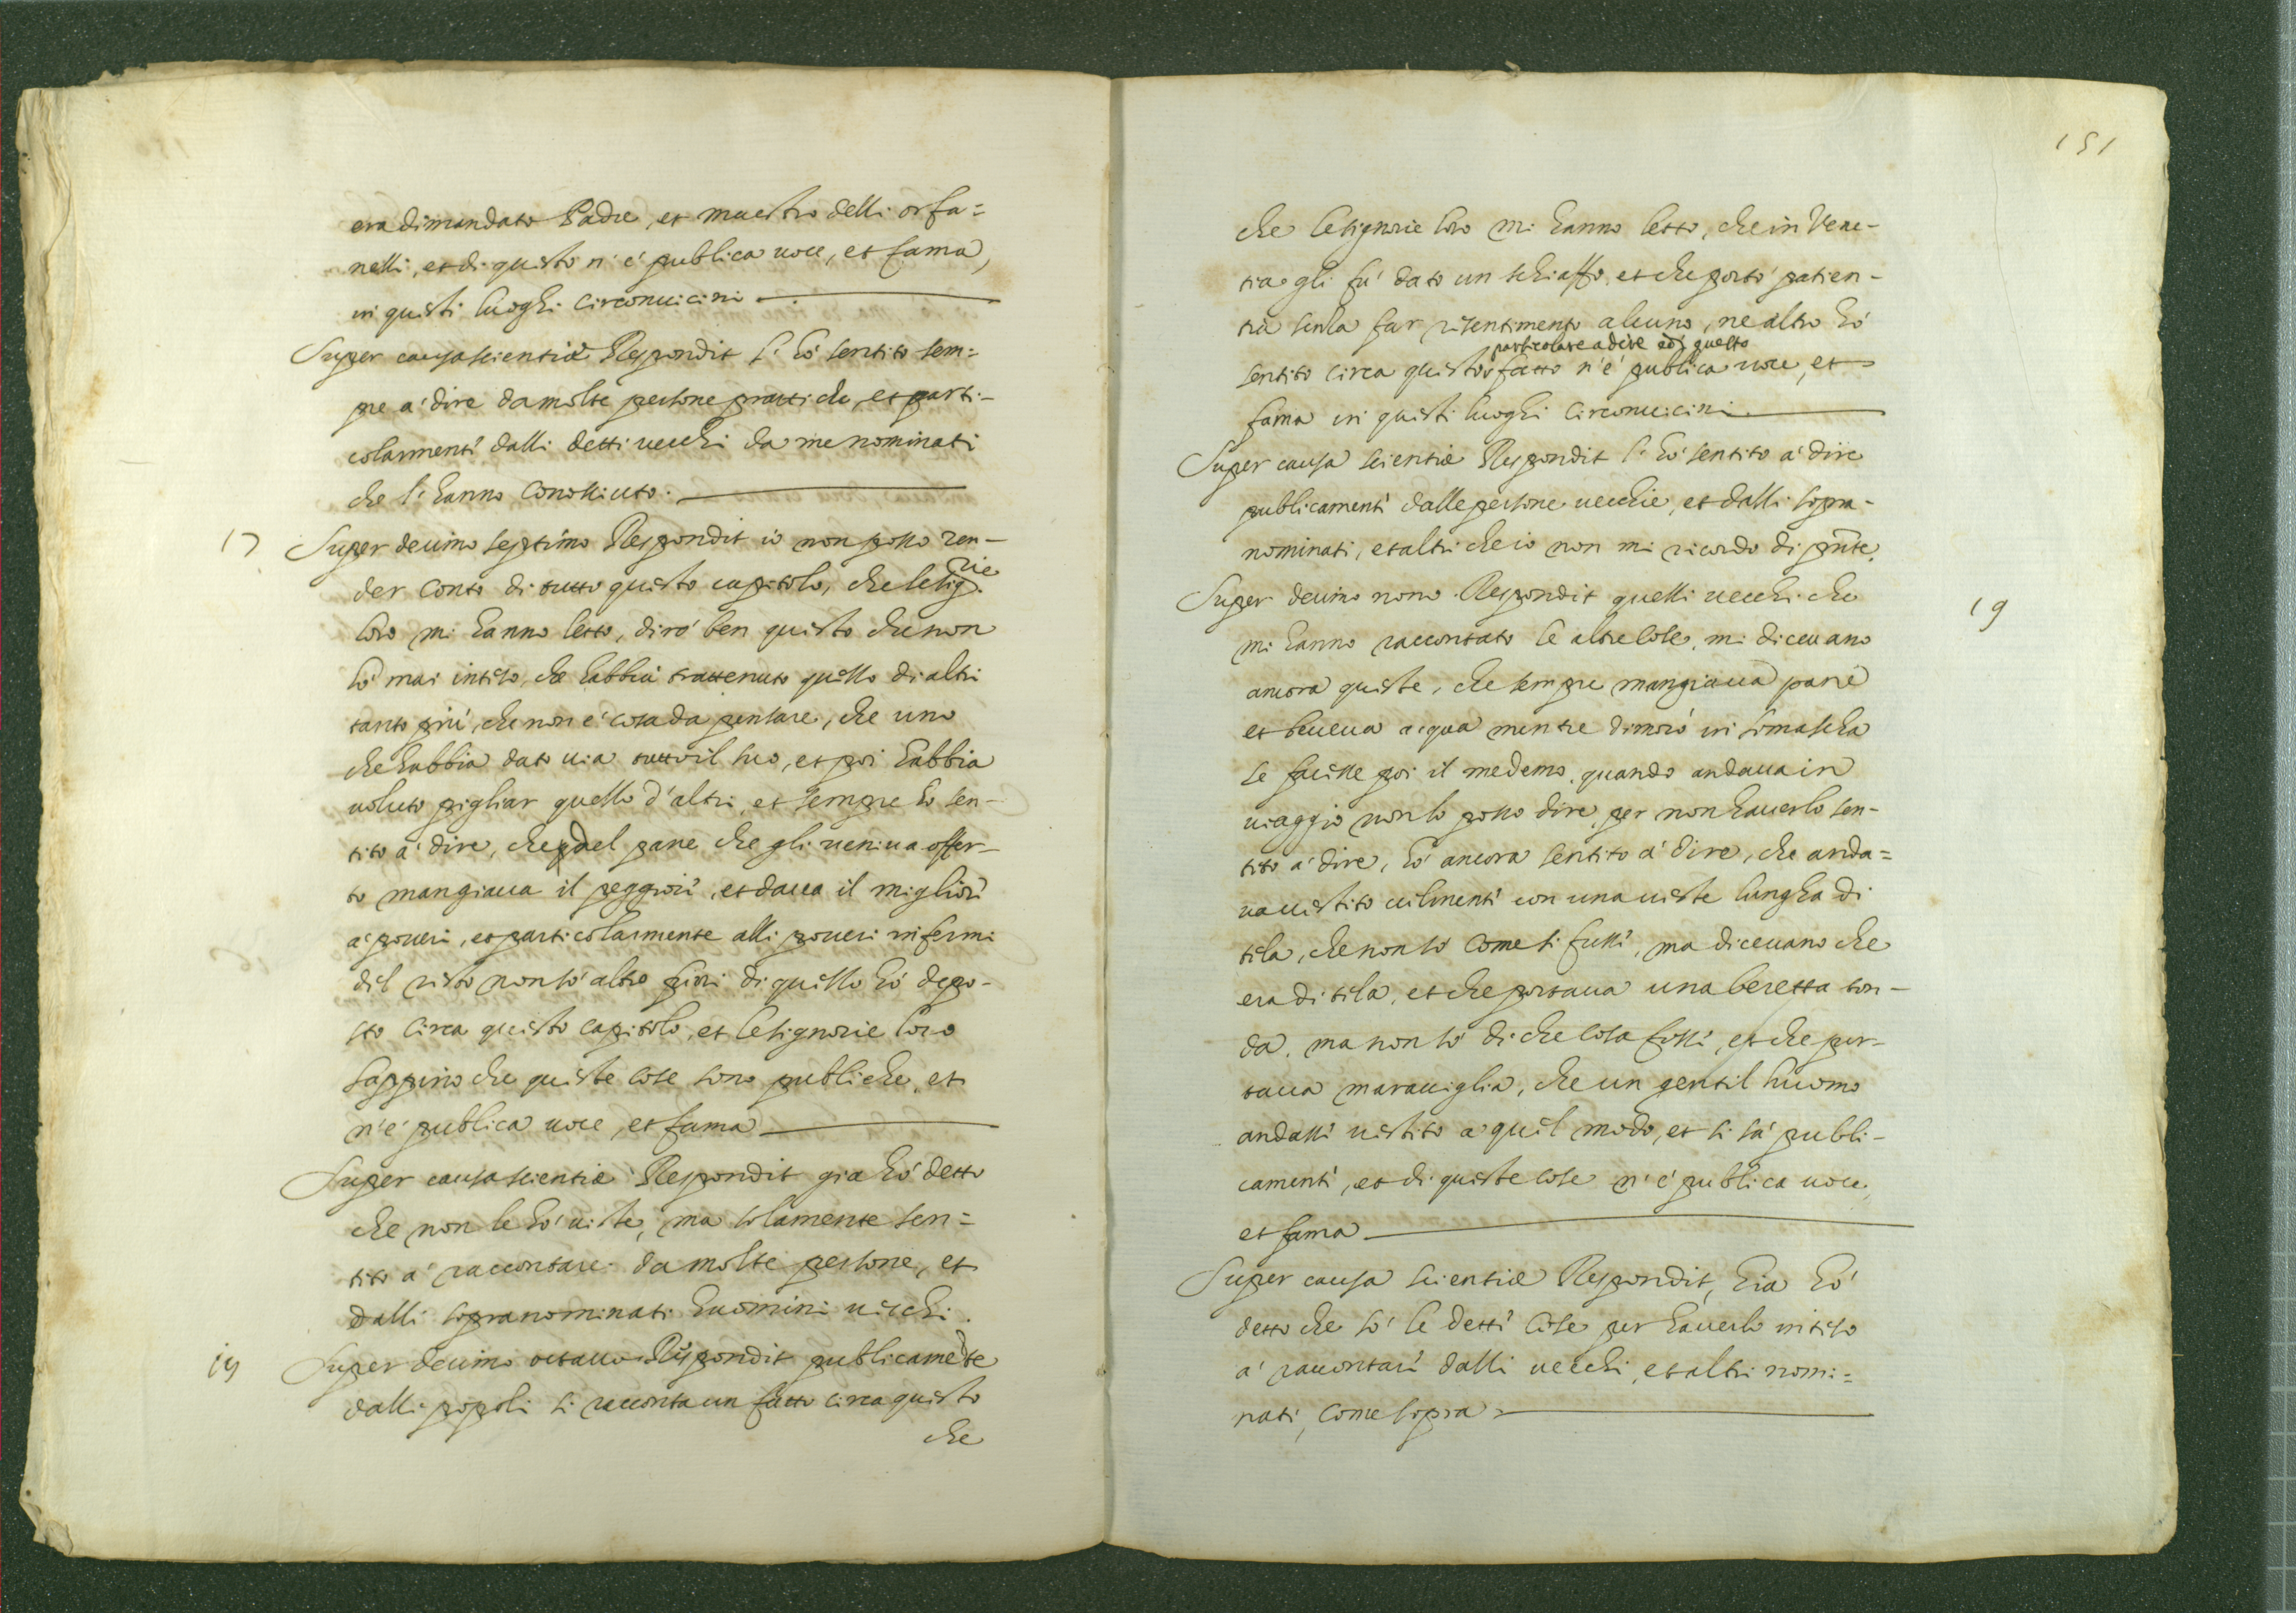 era dimandato Padre, et maestro delli orfa=
nelli, et di questo n'é publica uoce, et fama,
in questi luoghi circonuicini
Super causa scientiæ Respondit l'hó sentito sem=
pre á dire da molte persone prattiche, et parti-
colarmente dalli detti uecchi da me nominati
che l'hanno conosciuto.
17 Super decimo septimo Respondit io non posso ren-
der conto di tutto questo capitolo, che le sig.rie
loro mi hanno letto, diró ben questo che non
hó mai inteso, che habbia trattenuto quello di altri
tanto piú, che non é cosa da pensare, che uno
che habbia dato uia tutto il suo, et poi habbia
uoluto pigliar quello d'altri, et sempre ho sen-
tito á dire, che del pane che gli ueniua offer-
to mangiaua il peggiore, et daua il migliore
á poueri, et particolarmente alli poueri infermi
del resto non só altro fuori di quello hó depo-
sto circa questo capitolo, et le signorie loro
sappino che queste cose sono publiche, et
n'é publica uoce, et fama
Super causa scientiæ Respondit gia hó detto
che non le hó uiste, ma solamente sen=
tito á raccontare da molte persone, et
dalli sopranominati huomini uecchi.
18 Super decimo octauo Respondit publicamente
dalli popoli si racconta un fatto circa questo
che
151
che le signorie loro mi hanno letto, che in Vene-
tia gli fú dato un schiaffo, et che portó patien-
tia senza far risentimento alcuno, ne altro hó
particolare a dire et questo
sentito circa questo fatto n'é publica uoce, et
fama in questi luoghi circonuicini
Super causa scientiæ Respondit l'hó sentito á dire
publicamente dalle persone uecchie, et dalli sopra-
nominati, et altri che io non mi ricordo di pnte.
19 Super decimo nono Respondit quelli uecchi che
mi hanno raccontato le altre cose, mi diceuano
ancora queste, che sempre mangiaua pane
et beueua acqua mentre dimoró in somascha
se facesse poi il medemo, quando andaua in
uiaggio non lo posso dire, per non hauerlo sen-
tito á dire, hó ancora sentito á dire, che anda=
ua uestito uilmente con una ueste lungha di
tela, che non só come si fusse, ma diceuano che
era di tela, et che portaua una beretta ton-
da, ma non só di che cosa fosse, et che por-
taua marauiglia, che un gentil huomo
andasse uestito a quel modo, et si sá publi-
camente, et di queste cose n'é publica uoce,
et fama
Super causa scientiæ Respondit, Gia hó
detto che só le dette cose per hauerlo inteso
á raccontare dalli uecchi, et altri nomi=
nati, come sopra